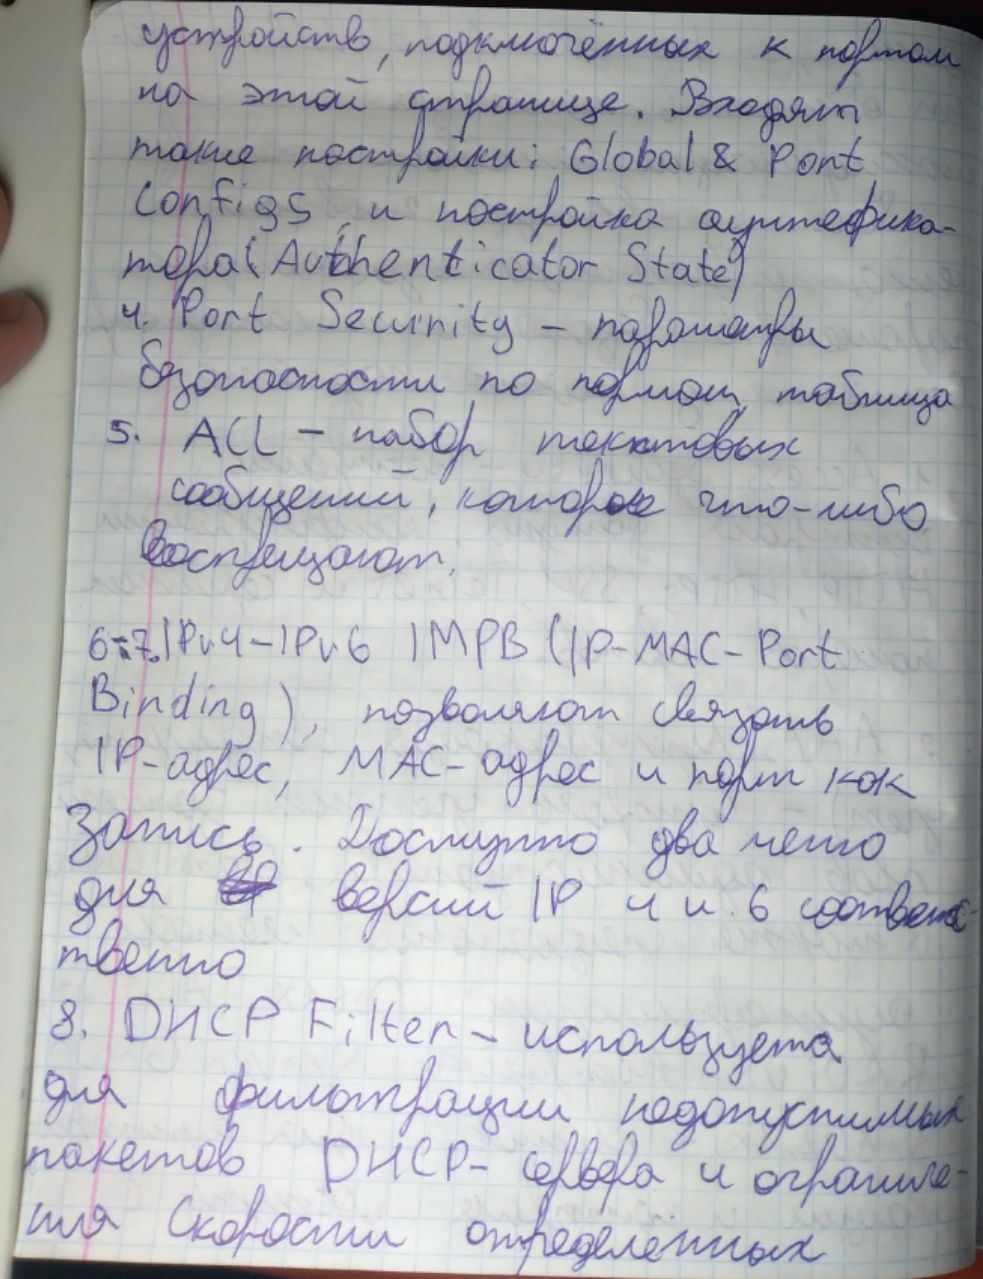 устройств, подключённых к портам
на этой странице. Входят
такие настройки: Global & Port
Configs и настройка аутефика-
тора (Authenticator State)
4. Port Security – параметры
безопасности по портам, таблица
5. ACL – набор текстовых
сообщений, которое что-либо
воспрещают.
6-7. IPv4-IPv6 IMPB (IP-MAC-Port
Binding), позволяют связать
IP-адрес, MAC-адрес и порт как
Запись. Доступно два меню
для версий IP 4 и 6 соответс-
твенно
8. DHCP Filter – используета
для фильтрации недопустимых
пакетов DHCP- сервера и ограниче-
ния скорости определенных